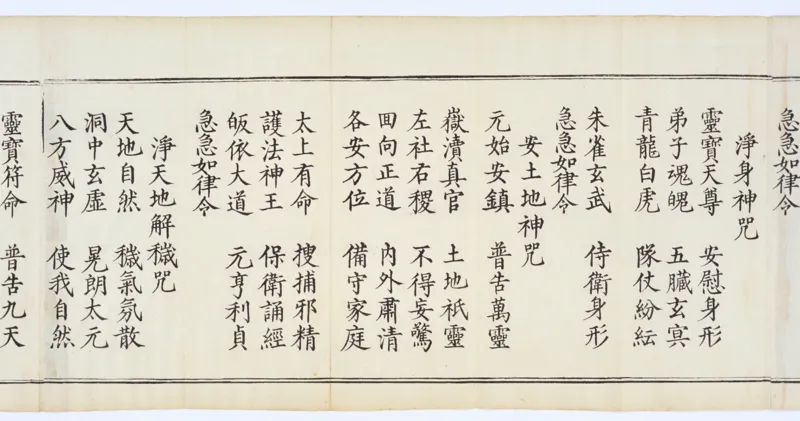 急急如律令
淨身神咒
靈寶天尊　安慰身形
弟子魂魄　五臟玄冥
青龍白虎　隊仗紛紜
朱雀玄武　侍衛身形
急急如律令
安土地神咒
元始安鎮　普告萬靈
嶽瀆真官　土地祇靈
左社右稷　不得妄驚
回向正道　內外肅清
各安方位　備守家庭
太上有命　搜捕邪精
護法神王　保衛誦經
皈依大道　元亨利貞
急急如律令
淨天地解穢咒
天地自然　穢氣氛散
洞中玄虛　晃朗太元
八方威神　使我自然
靈寶符命　普告九天